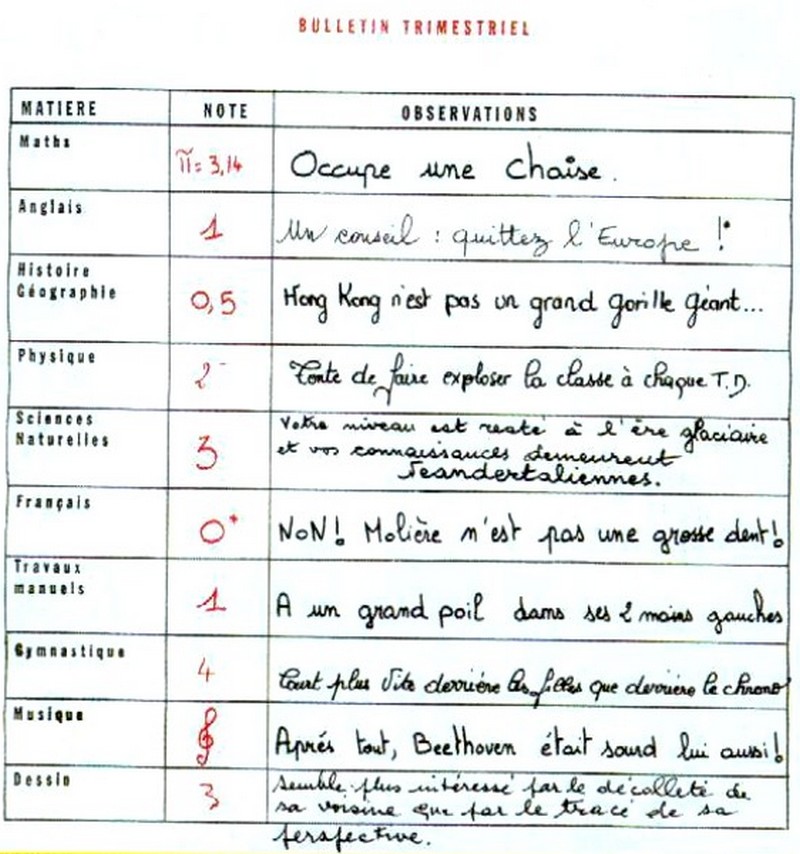 BULLETIN TRIMESTRIEL
MATIERE NOTE OBSERVATIONS
Maths
π = 3,14 Occupe une chaise.
Anglais
1 Un conseil : quittez l'Europe !
Histoire
Géographie
0,5 Hong Kong n'est pas un grand gorille géant...
Physique
2- Tente de faire exploser la classe à chaque T.D.
Sciences
Naturelles
3
Votre niveau est resté à l'ère glaciaire
et vos connaissances demeurent
Neandertaliennes.
Français
0+ NON! Molière n'est pas une grosse dent!
Travaux
manuels
1 A un grand poil dans ses 2 mains gauches
Gymnastique
4 Court plus vite derrière les filles que derrière le chrono
Musique
𝄞 Après tout, Beethoven était sourd lui aussi!
Dessin
3
Semble plus intéressé par le décolleté de
sa voisine que par le tracé de sa
perspective.